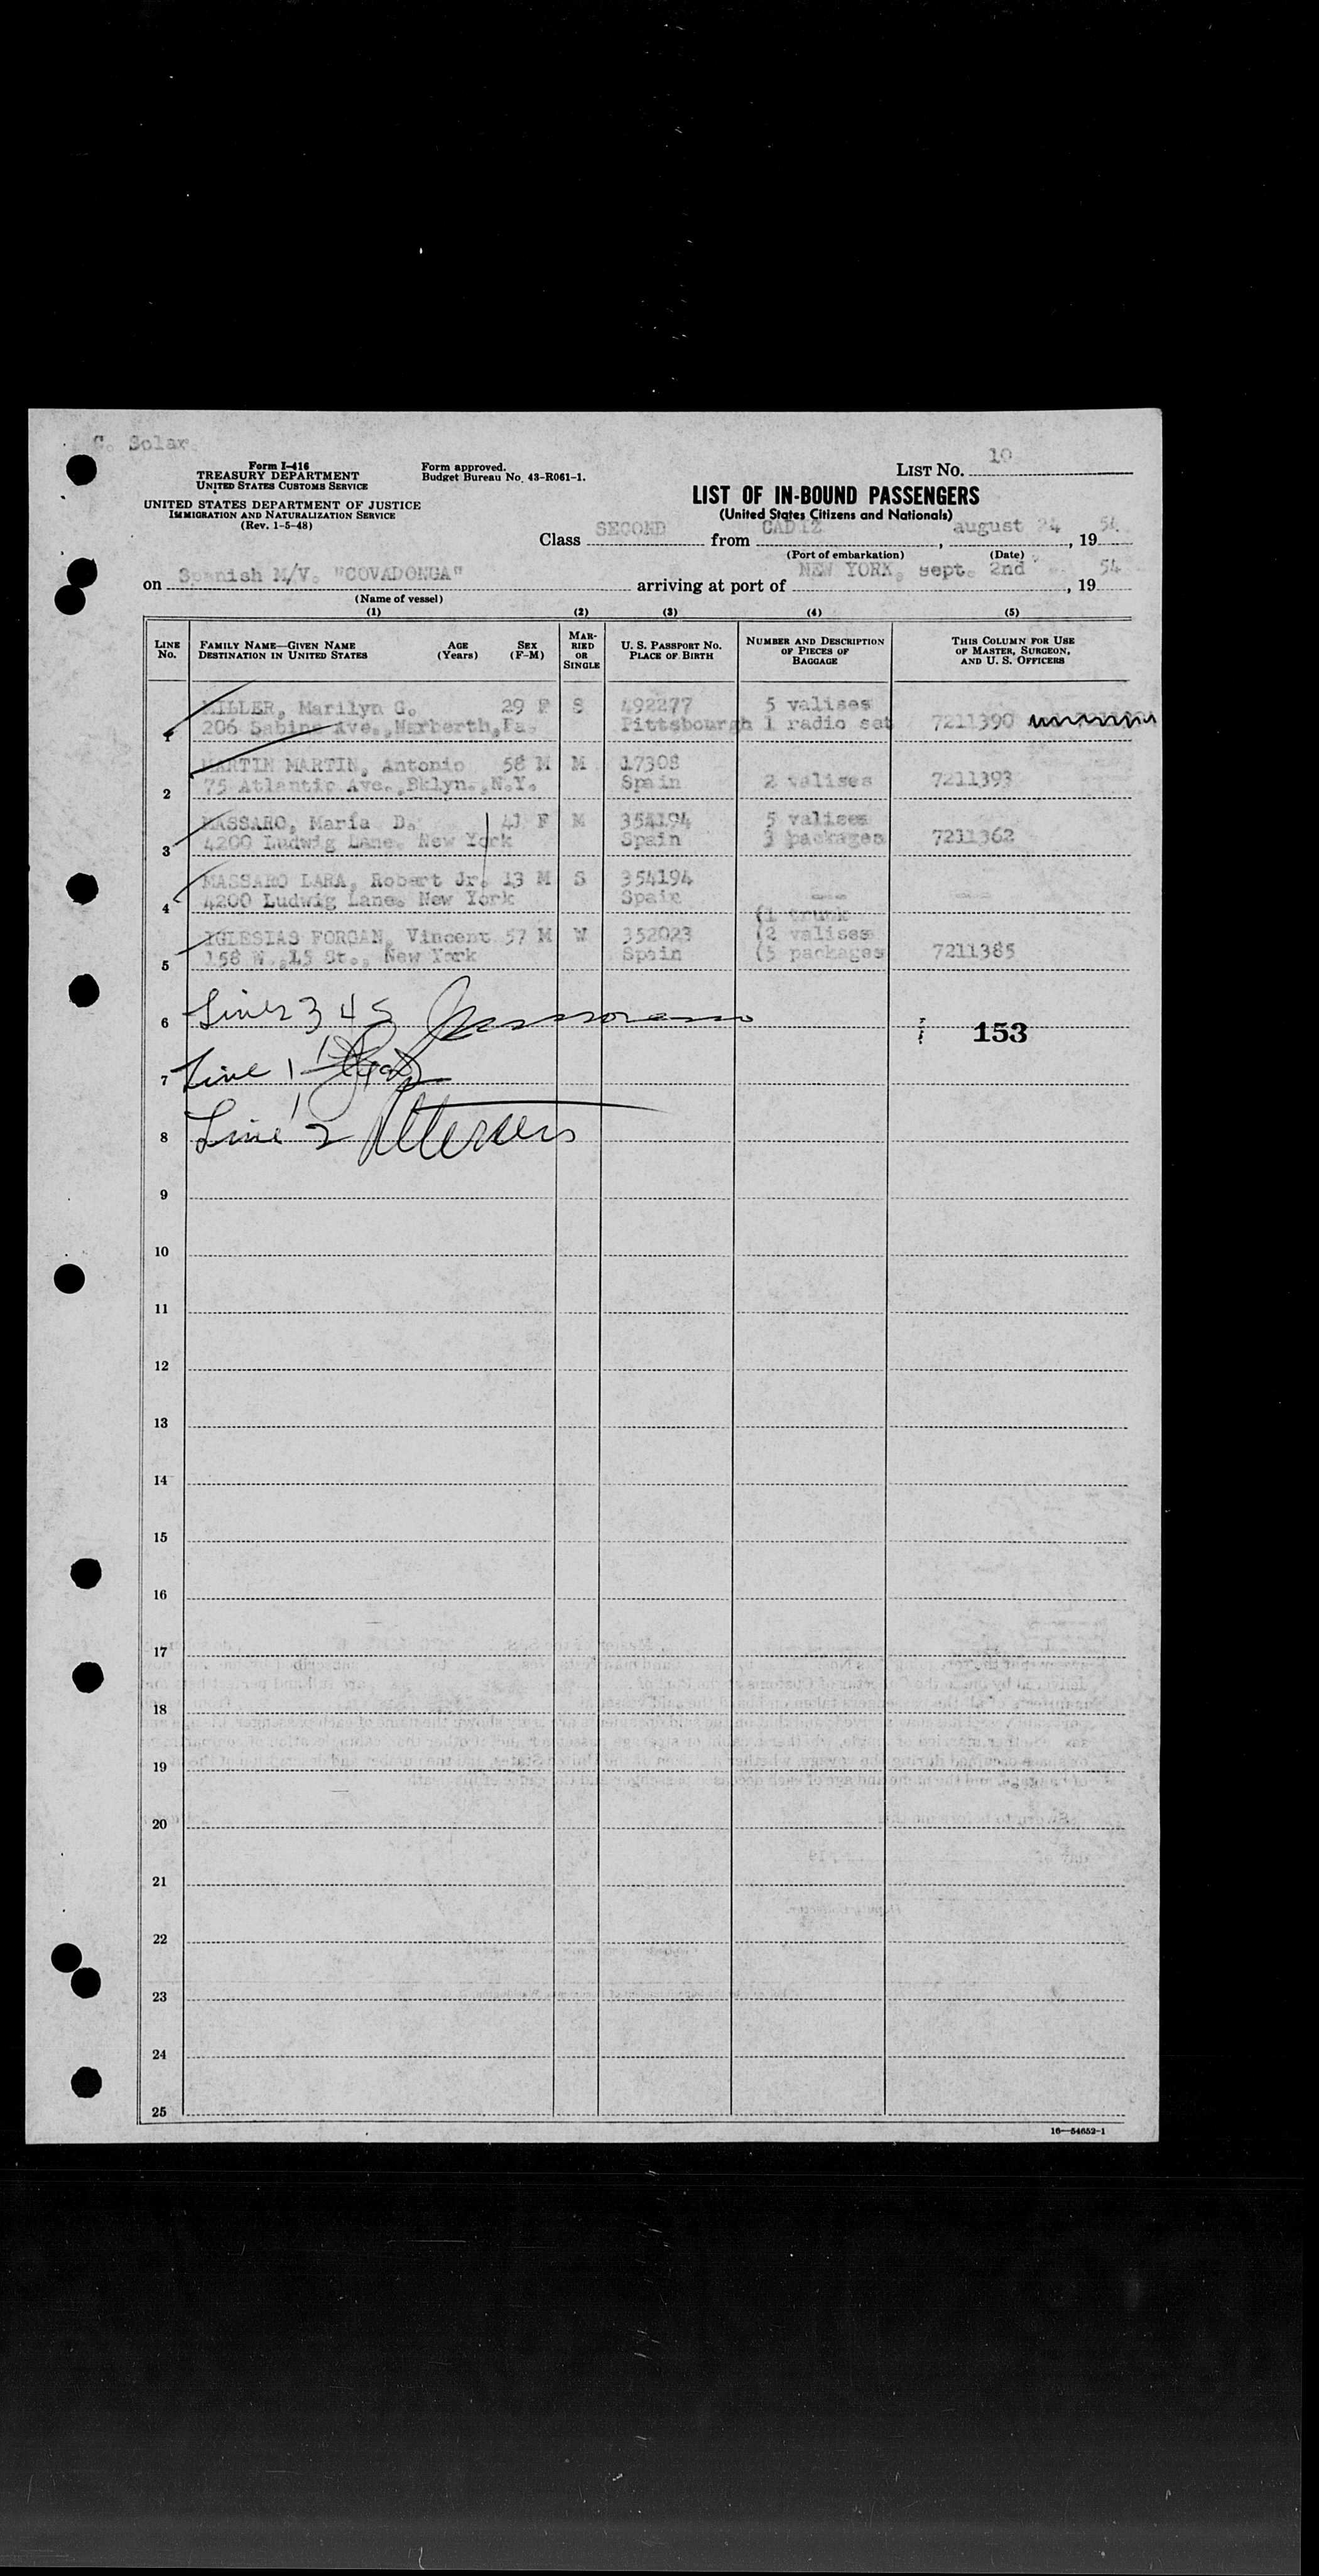 C. Solar.
Form I-416
TREASURY DEPARTMENT
UNITED STATES CUSTOMS SERVICE
UNITED STATES DEPARTMENT OF JUSTICE
IMMIGRATION AND NATURALIZATION SERVICE
(Rev. 1-5-48)
Form approved.
Budget Bureau No. 43-R061-1.
LIST No. 10
LIST OF IN-BOUND PASSENGERS
(United States Citizens and Nationals)
Class SECOND from CADIZ, august 24, 19 54
(Port of embarkation) (Date)
on Spanish M/V. "COVADONGA" arriving at port of NEW YORK, sept. 2nd, 19 54
(Name of vessel)
(1) (2) (3) (4) (5)
LINE No. FAMILY NAME—GIVEN NAME DESTINATION IN UNITED STATES AGE (Years) SEX (F-M) MARRIED OR SINGLE U. S. PASSPORT No. PLACE OF BIRTH NUMBER AND DESCRIPTION OF PIECES OF BAGGAGE THIS COLUMN FOR USE OF MASTER, SURGEON, AND U. S. OFFICERS
MILLER, Marilyn G. 29 F S 492277 5 valises
1 206 Sabine Ave.,Narberth,Pa. Pittsbourgh 1 radio set 7211390
MARTIN MARTIN, Antonio 58 M M 17308
2 75 Atlantic Ave.,Bklyn.,N.Y. Spain 2 valises 7211393
MASSARO, María D. 41 F M 354194 5 valises
3 4200 Ludwig Lane. New York Spain 3 packages 7211362
MASSARO LARA, Robert Jr. 13 M S 354194
4 4200 Ludwig Lane. New York Spain --- ---
(1 trunk
IGLESIAS FORGAN, Vincent 57 M W 352023 (2 valises
5 158 W.,15 St., New York Spain (5 packages 7211385
6 Lines 3 4 5
153
7 Line 1
8 Line 2
9
10
11
12
13
14
15
16
17
18
19
20
21
22
23
24
25
16—54652-1